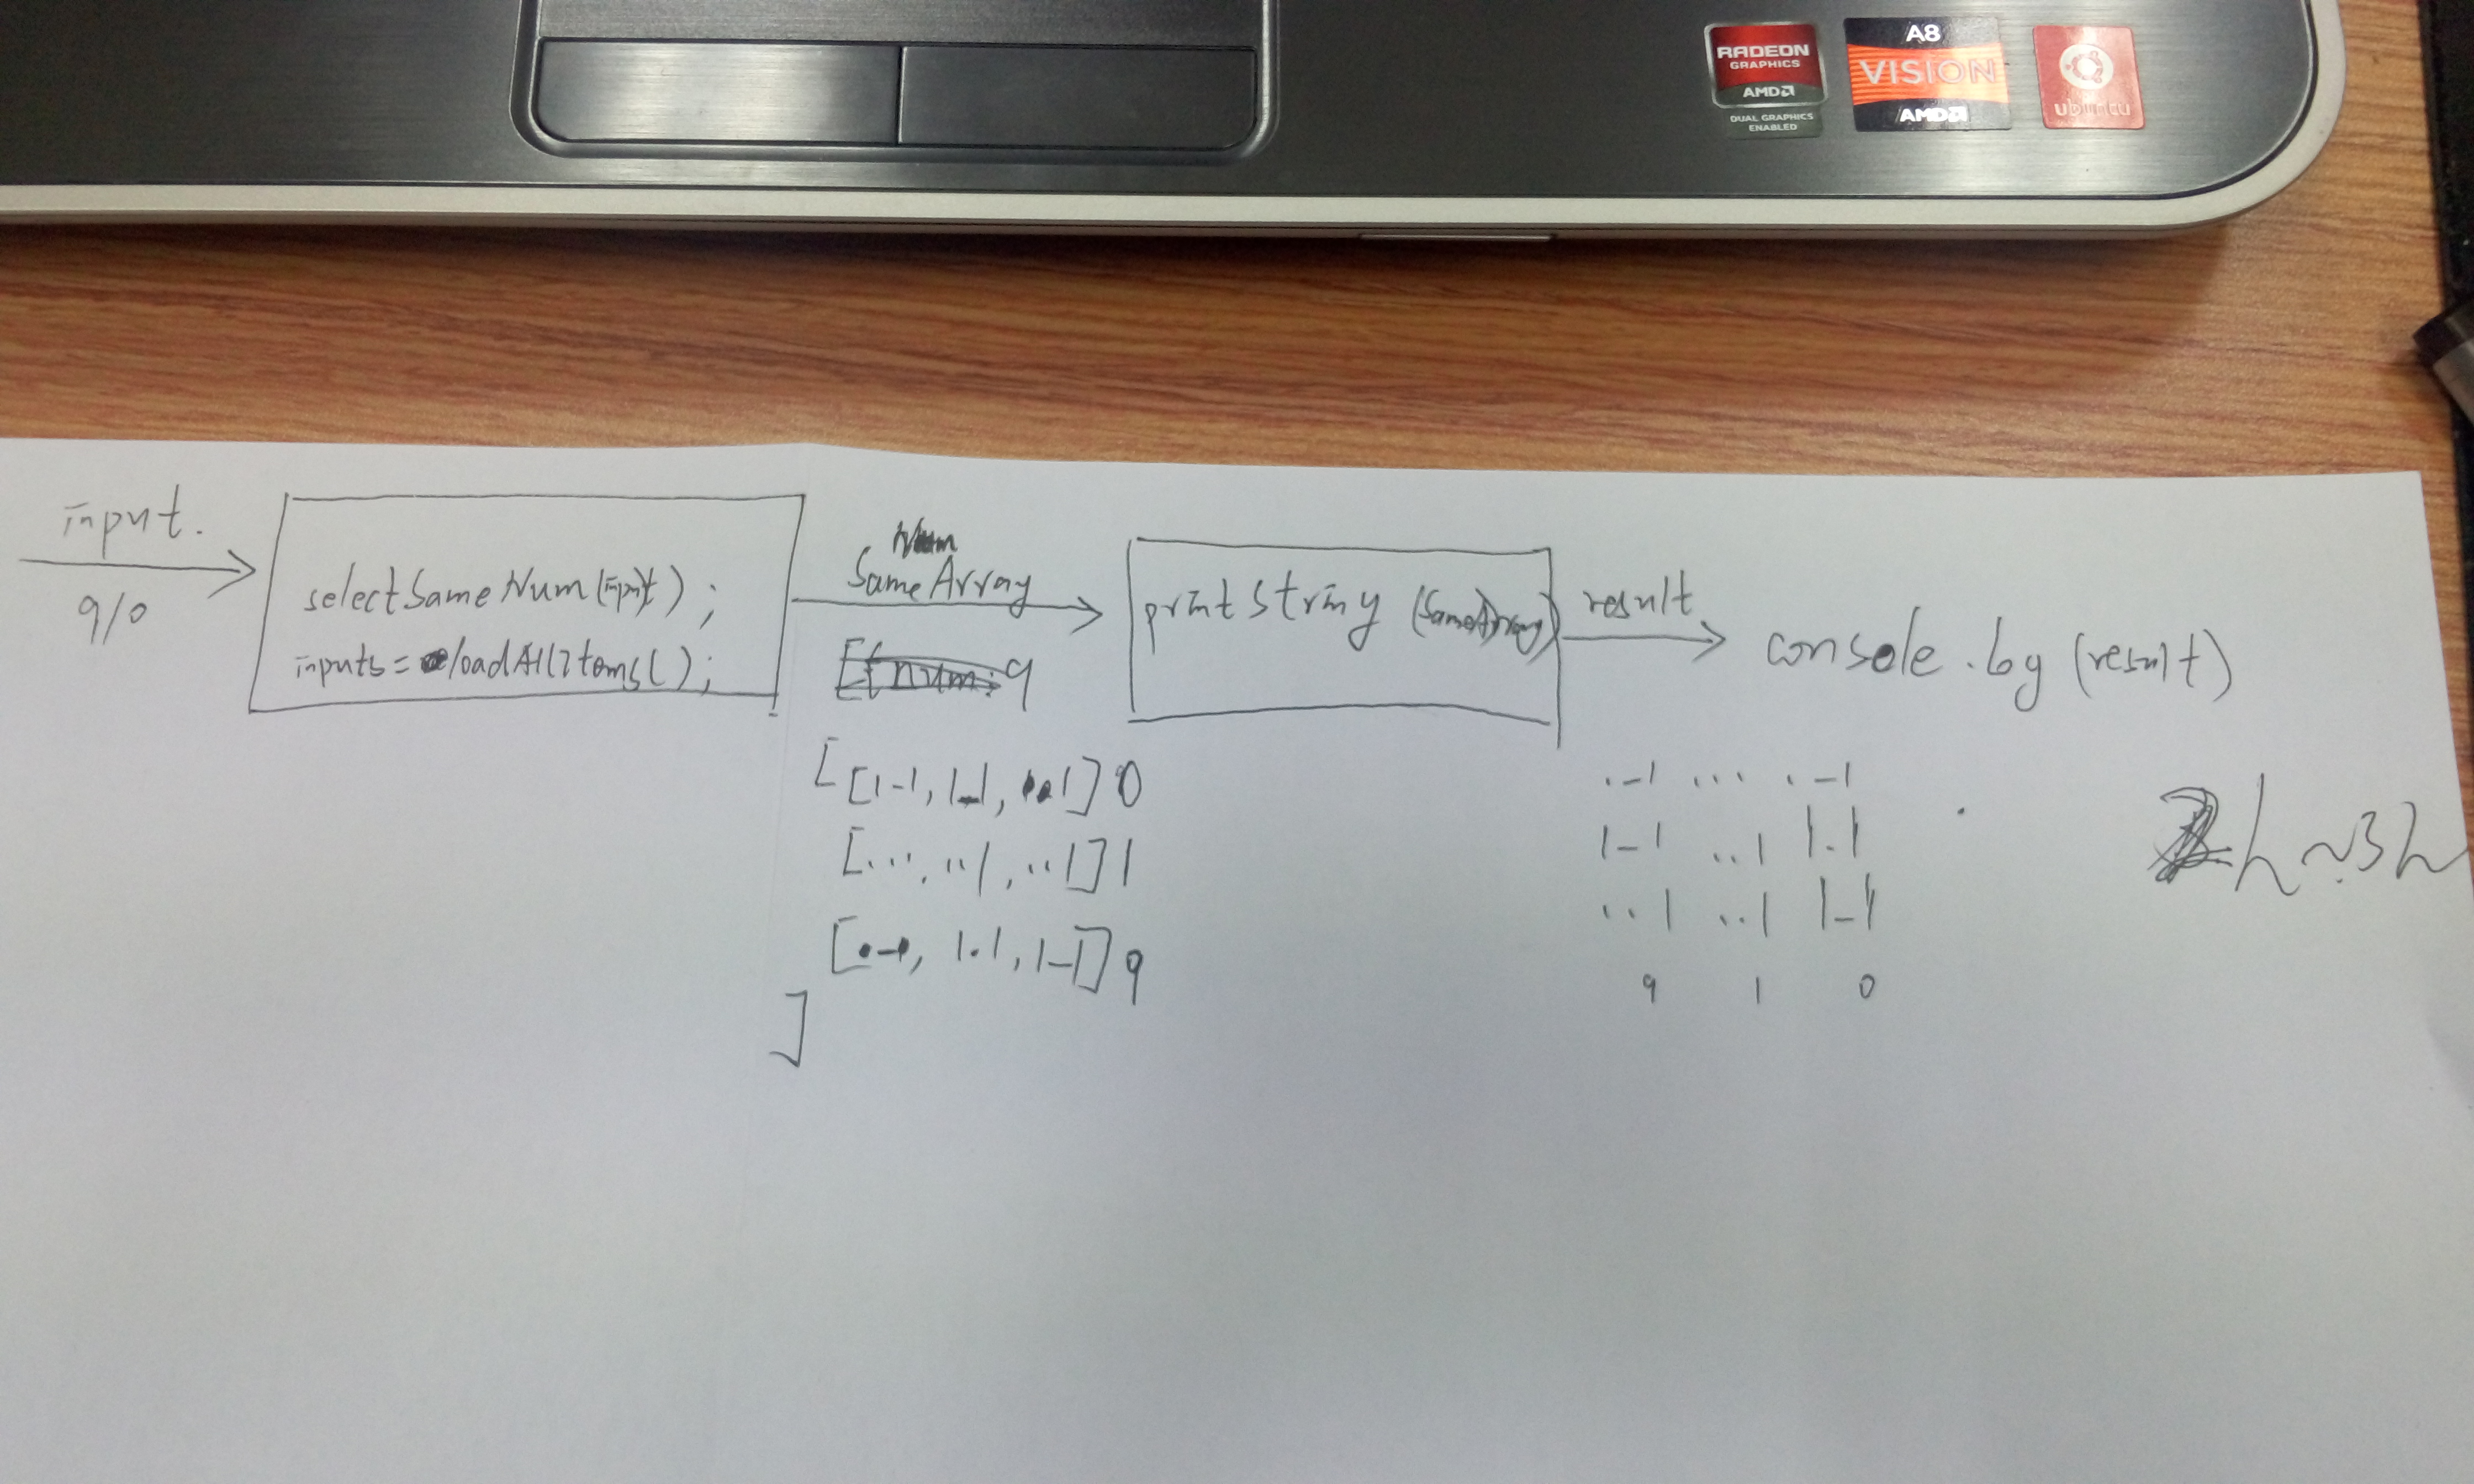 RADEON
GRAPHICS
AMD
DUAL GRAPHICS
ENABLED
A8
VISION
AMD
ubuntu
input.
910
selectSameNum(input);
inputs = loadAllItems();
Num
SameArray
[{num:9
[[1-1, 1_1, 1.1] 0
[..., ..1, ..1] 1
[.-., 1.1, 1_1] 9
]
printString (SameArray)
result
console.log(result)
.-1 ... .-1
1-1 ..1 1.1
..1 ..1 1_1
9 1 0
h ~ 3h